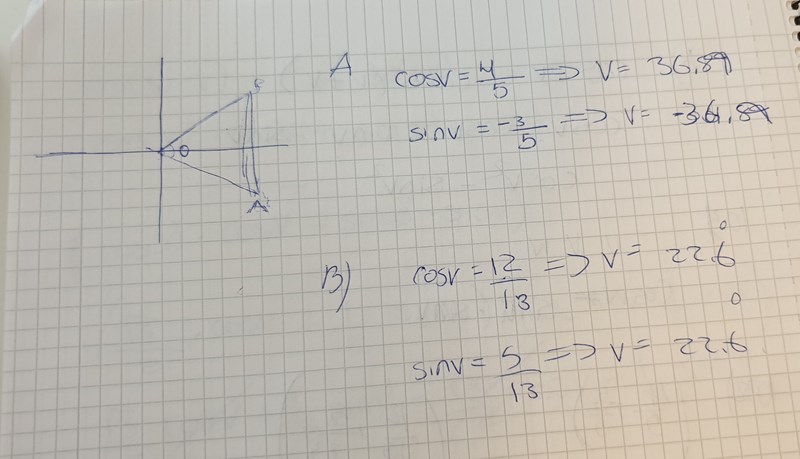 A
cosv = 4/5 => v = 36.87
sinv = -3/5 => v = -36.87
A
B)
cosv = 12/13 => v = 22.6°
sinv = 5/13 => v = 22.6°